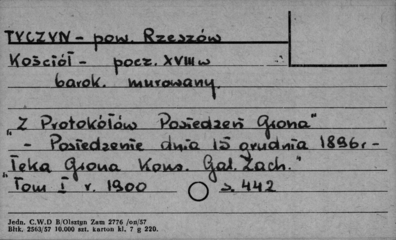 TYCZYN - pow. Rzeszów
Kościół - pocz. XVIII w
barok. murowany.
"Z Protokółów Posiedzeń Grona"
- Posiedzenie dnia 15 grudnia 1896 r -
"Teka Grona Kons. Gal. Zach."
"Tom I r. 1900 s. 442
Jedn. C.W.D B/Olsztyn Zam 2776 /on/57
Bltk. 2563/57 10.000 szt. karton kl. 7 g 220.